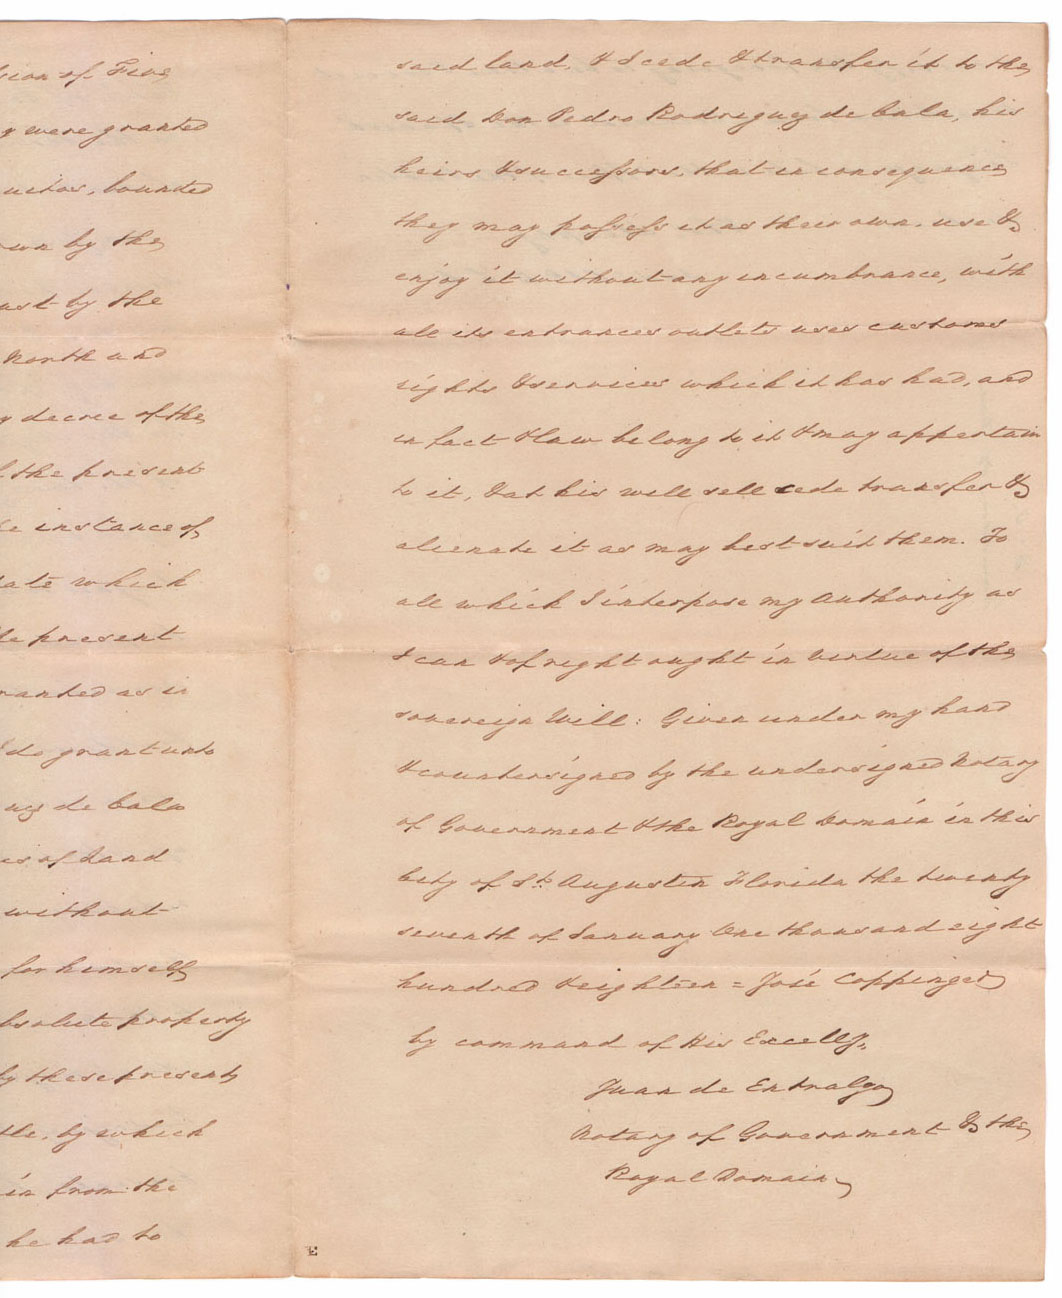 sion of Five
y were granted
uitos, bounded
own by the
ast by the
North and
y decree of the
l the present
he instance of
date which
the present
ranted as is
I do grant unto
uez de Cala
es of Land
without
for himself
bsolute property
by these presents
tle, by which
in from the
he had to
said land, & I cede & transfer it to the
said Don Pedro Rodriguez de Cala, his
heirs & successors, that in consequence
they may possess it as their own, use &
enjoy it without any incumbrance, with
all its entrances outlets uses customs
rights & services which it has had, and
in fact & law belong to it & may appertain
to it, & at his will sell cede transfer &
alienate it as may best suit them. To
all which I interpose my Authority as
I can & of right ought in virtue of the
sovereign Will: Given under my hand
& countersigned by the undersigned Notary
of Government & the Royal Domain in this
City of St. Augustin Florida the twenty
seventh of January One thousand eight
hundred & eighteen = José Coppinger
by command of His Excelly.
Juan de Entralgo
Notary of Government & the
Royal Domain